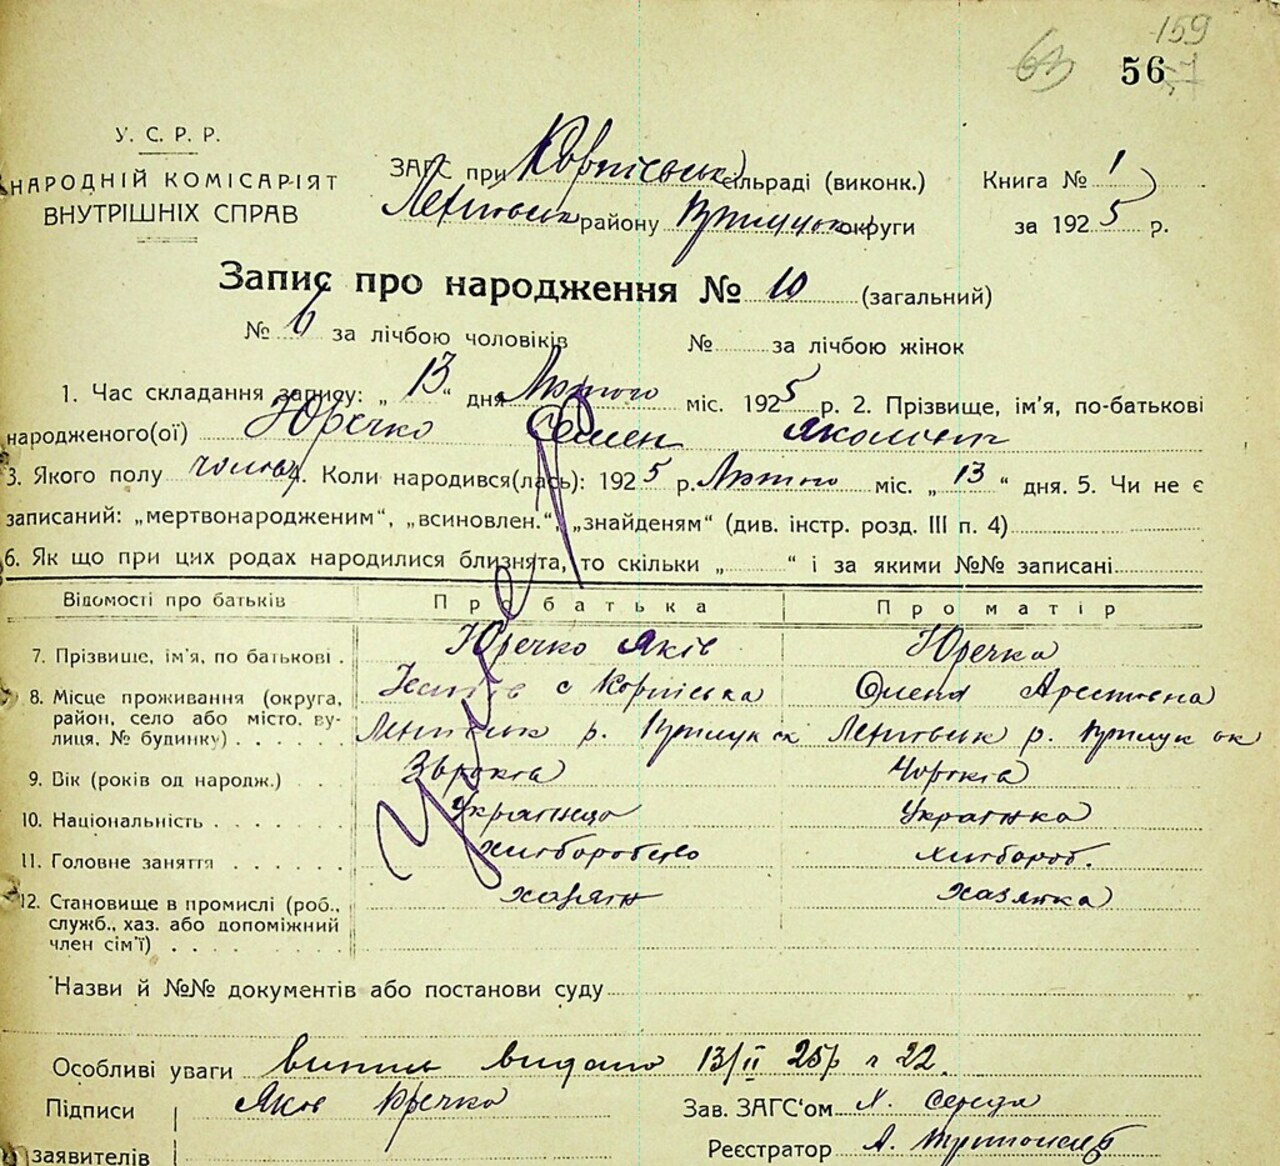 159
63 56
У. С. Р. Р.
НАРОДНІЙ КОМІСАРІЯТ
ВНУТРІШНІХ СПРАВ
ЗАГС при сільраді (виконк.) Книга № 1
району округи за 1925 р.
Запис про народження № 10 (загальний)
№ 6 за лічбою чоловіків № за лічбою жінок
1. Час складання запису: „13“ дня Лютого міс. 1925 р. 2. Прізвище, ім’я, по-батькові
народженого(ої) Юречко Семен
3. Якого полу 4. Коли народився(лась): 1925 р. Лютого міс. „13“ дня. 5. Чи не є
записаний: „мертвонародженим“, „всиновлен.“, „знайденям“ (див. інстр. розд. III п. 4)
6. Як що при цих родах народилися близнята, то скільки „ “ і за якими №№ записані
Відомості про батьків Про батька Про матір
7. Прізвище, ім’я, по батькові . Юречко Яків Юречка
8. Місце проживання (округа, Олена
район, село або місто, ву- р. р.
лиця, № будинку) . . . . . .
9. Вік (років од народж.) . .
10. Національність . . . . . . . Українець Українка
11. Головне заняття . . . . . . хліборобство хлібороб.
12. Становище в промислі (роб., хазяїн хазяйка
служб., хаз. або допоміжний
член сім’ї) . . . . . . . .
Назви й №№ документів або постанови суду
Особливі уваги видано 13/II 25р 22.
Підписи Яков Юречко Зав. ЗАГС’ом
заявителів Реєстратор А.